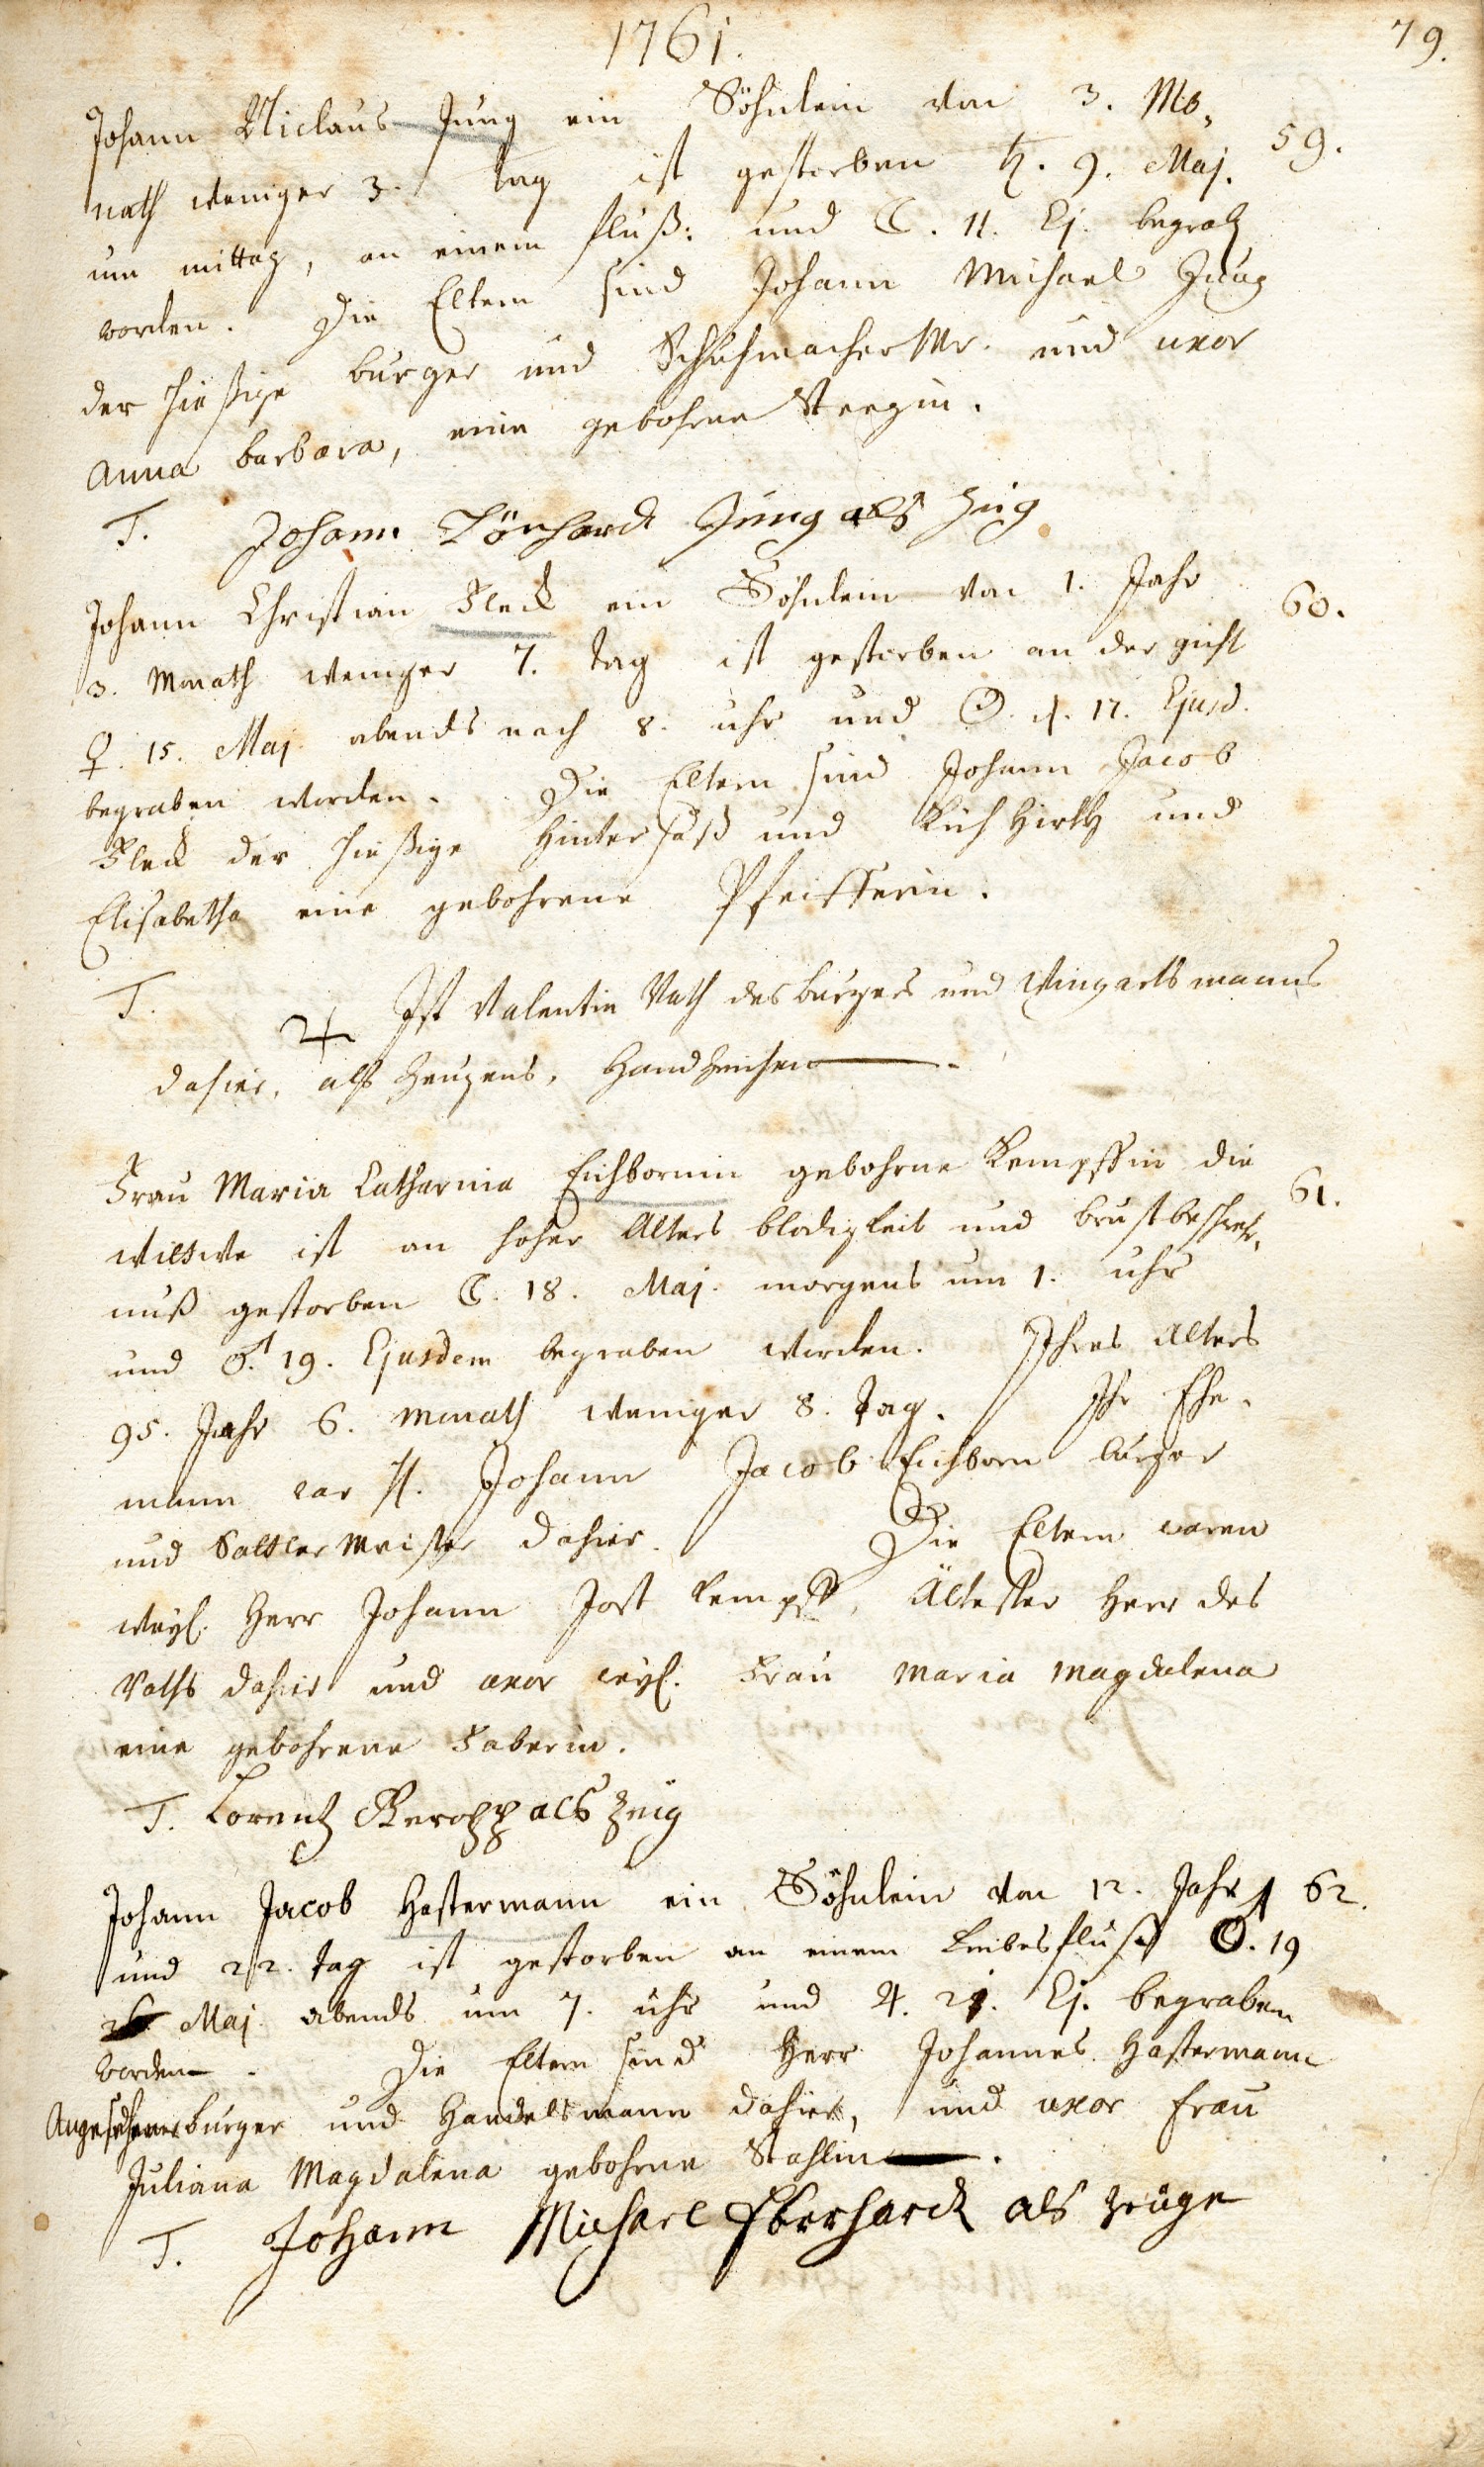 1761.
79.
Johann Niclaus Jung ein Söhnlein von 3. Mo„
59.
nath weniger 3. tag ist gestorben ♄. 9. Maj.
um mittag, an einem fluß: und ☾. 11. Ej. begrab
worden. Die Eltern sind Johann Michael Jung
der hießige burger und Schuhmacher Mr. und uxor
anna barbara, eine gebohrne Steegin.
T. Johann Lönhardt Jung als zeig
Johann Christian Fleck ein Söhnlein von 1. Jahr
60.
3. Monath weniger 7. tag ist gestorben an der gicht
♀. 15. Maj. abends nach 8. uhr und ☉. d. 17. Ejusd.
begraben worden. Die Eltern sind Johann Jacob
Fleck der hießige Hintersäß und Küh Hirth und
Elisabetha eine gebohrene Pfeifferin.
T. Ist Valentin Vath des burgers und Wingartsmanns
dahier, alß Zeugens, Handzeichen.
Frau Maria Catharina Eichbornin gebohrne Kempffin die
61.
wittwe ist an hoher Alters blödigkeit und brustbeschwehr„
nuß gestorben ☾. 18. Maj. morgens um 1. uhr
und ♂. 19. Ejusdem begraben worden. Ihres alters
95. Jahr 6. monath weniger 8. tag. Ihr Ehe„
mann war H. Johann Jacob Eichborn burger
und Sattler Meister dahier. Die Eltern waren
weyl. Herr Johann Jost Kempff, Ältester Herr des
Raths dahier und uxor weyl. Frau Maria Magdalena
eine gebohrene Faberin.
T. Lorentz als Zeig
Johann Jacob Hastermann ein Söhnlein von 12. Jahr
62.
und 22. tag ist gestorben an einem Leibesfluß ♂. 19
Maj. abends um 7. uhr und ♃. 21. Ej. begraben
worden. Die Eltern sind Herr Johannes Hastermann
Angesehener burger und Handelsmann dahier, und uxor Frau
Juliana Magdalena gebohrne Stahlin.
T. Johann Michael Eberhardt als zeuge